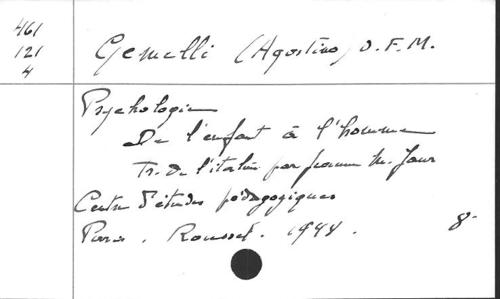 461
121
4
Gemelli (Agostino) O.F.M.
Psychologie
De l'enfant à l'homme
Tr. de l'italien par M. Jour
Centre d'études pédagogiques
Paris. Rousset. 1948.
8°